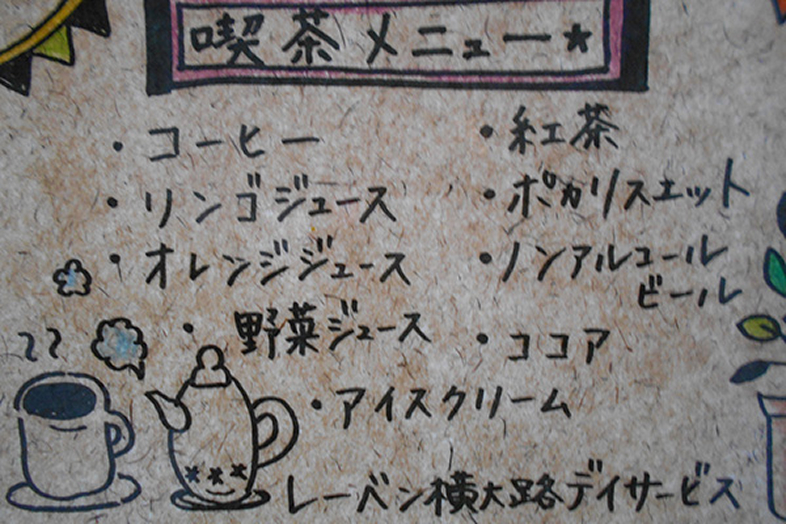 喫茶メニュー★
・コーヒー
・紅茶
・リンゴジュース
・ポカリスエット
・オレンジジュース
・ノンアルコール
ビール
・野菜ジュース
・ココア
・アイスクリーム
レーベン横大路デイサービス